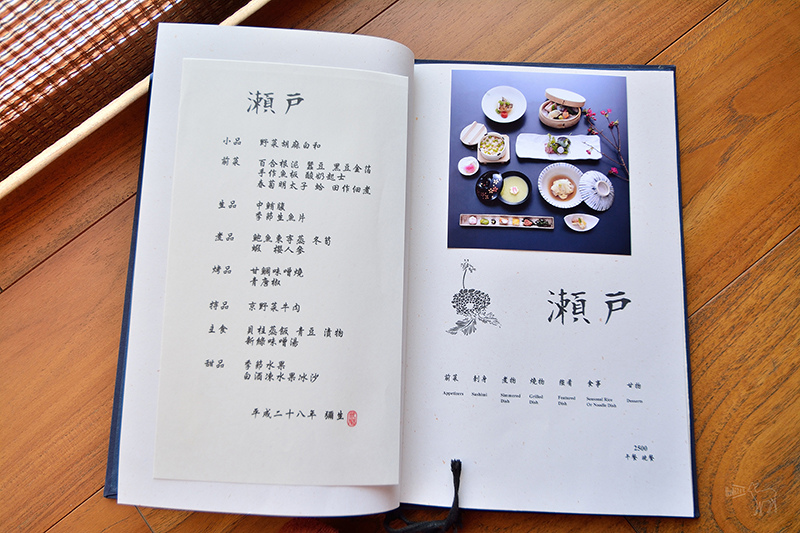 瀨戸
小品 野菜胡麻白和
前菜 百合根泥 蠶豆 黑豆金箔
手作魚板 酸奶起士
春菊明太子 蛤 田作佃煮
生品 中鮪腹
季節生魚片
煮品 鮑魚東寺蒸 冬筍
蝦 櫻人參
烤品 甘鯛味噌燒
青唐椒
京野菜牛肉
主食 貝柱蒸飯 青豆 漬物
新綠味噌湯
甜品 季節水果
白酒凍水果冰沙
平成二十八年 彌生
瀨戸
前菜 刺身 煮物 燒物 食事 甘物
Appetizers Sashimi Simmered Dish Grilled Dish Featured Dish Seasonal Rice Or Noodle Dish Desserts
2500
午餐 晚餐